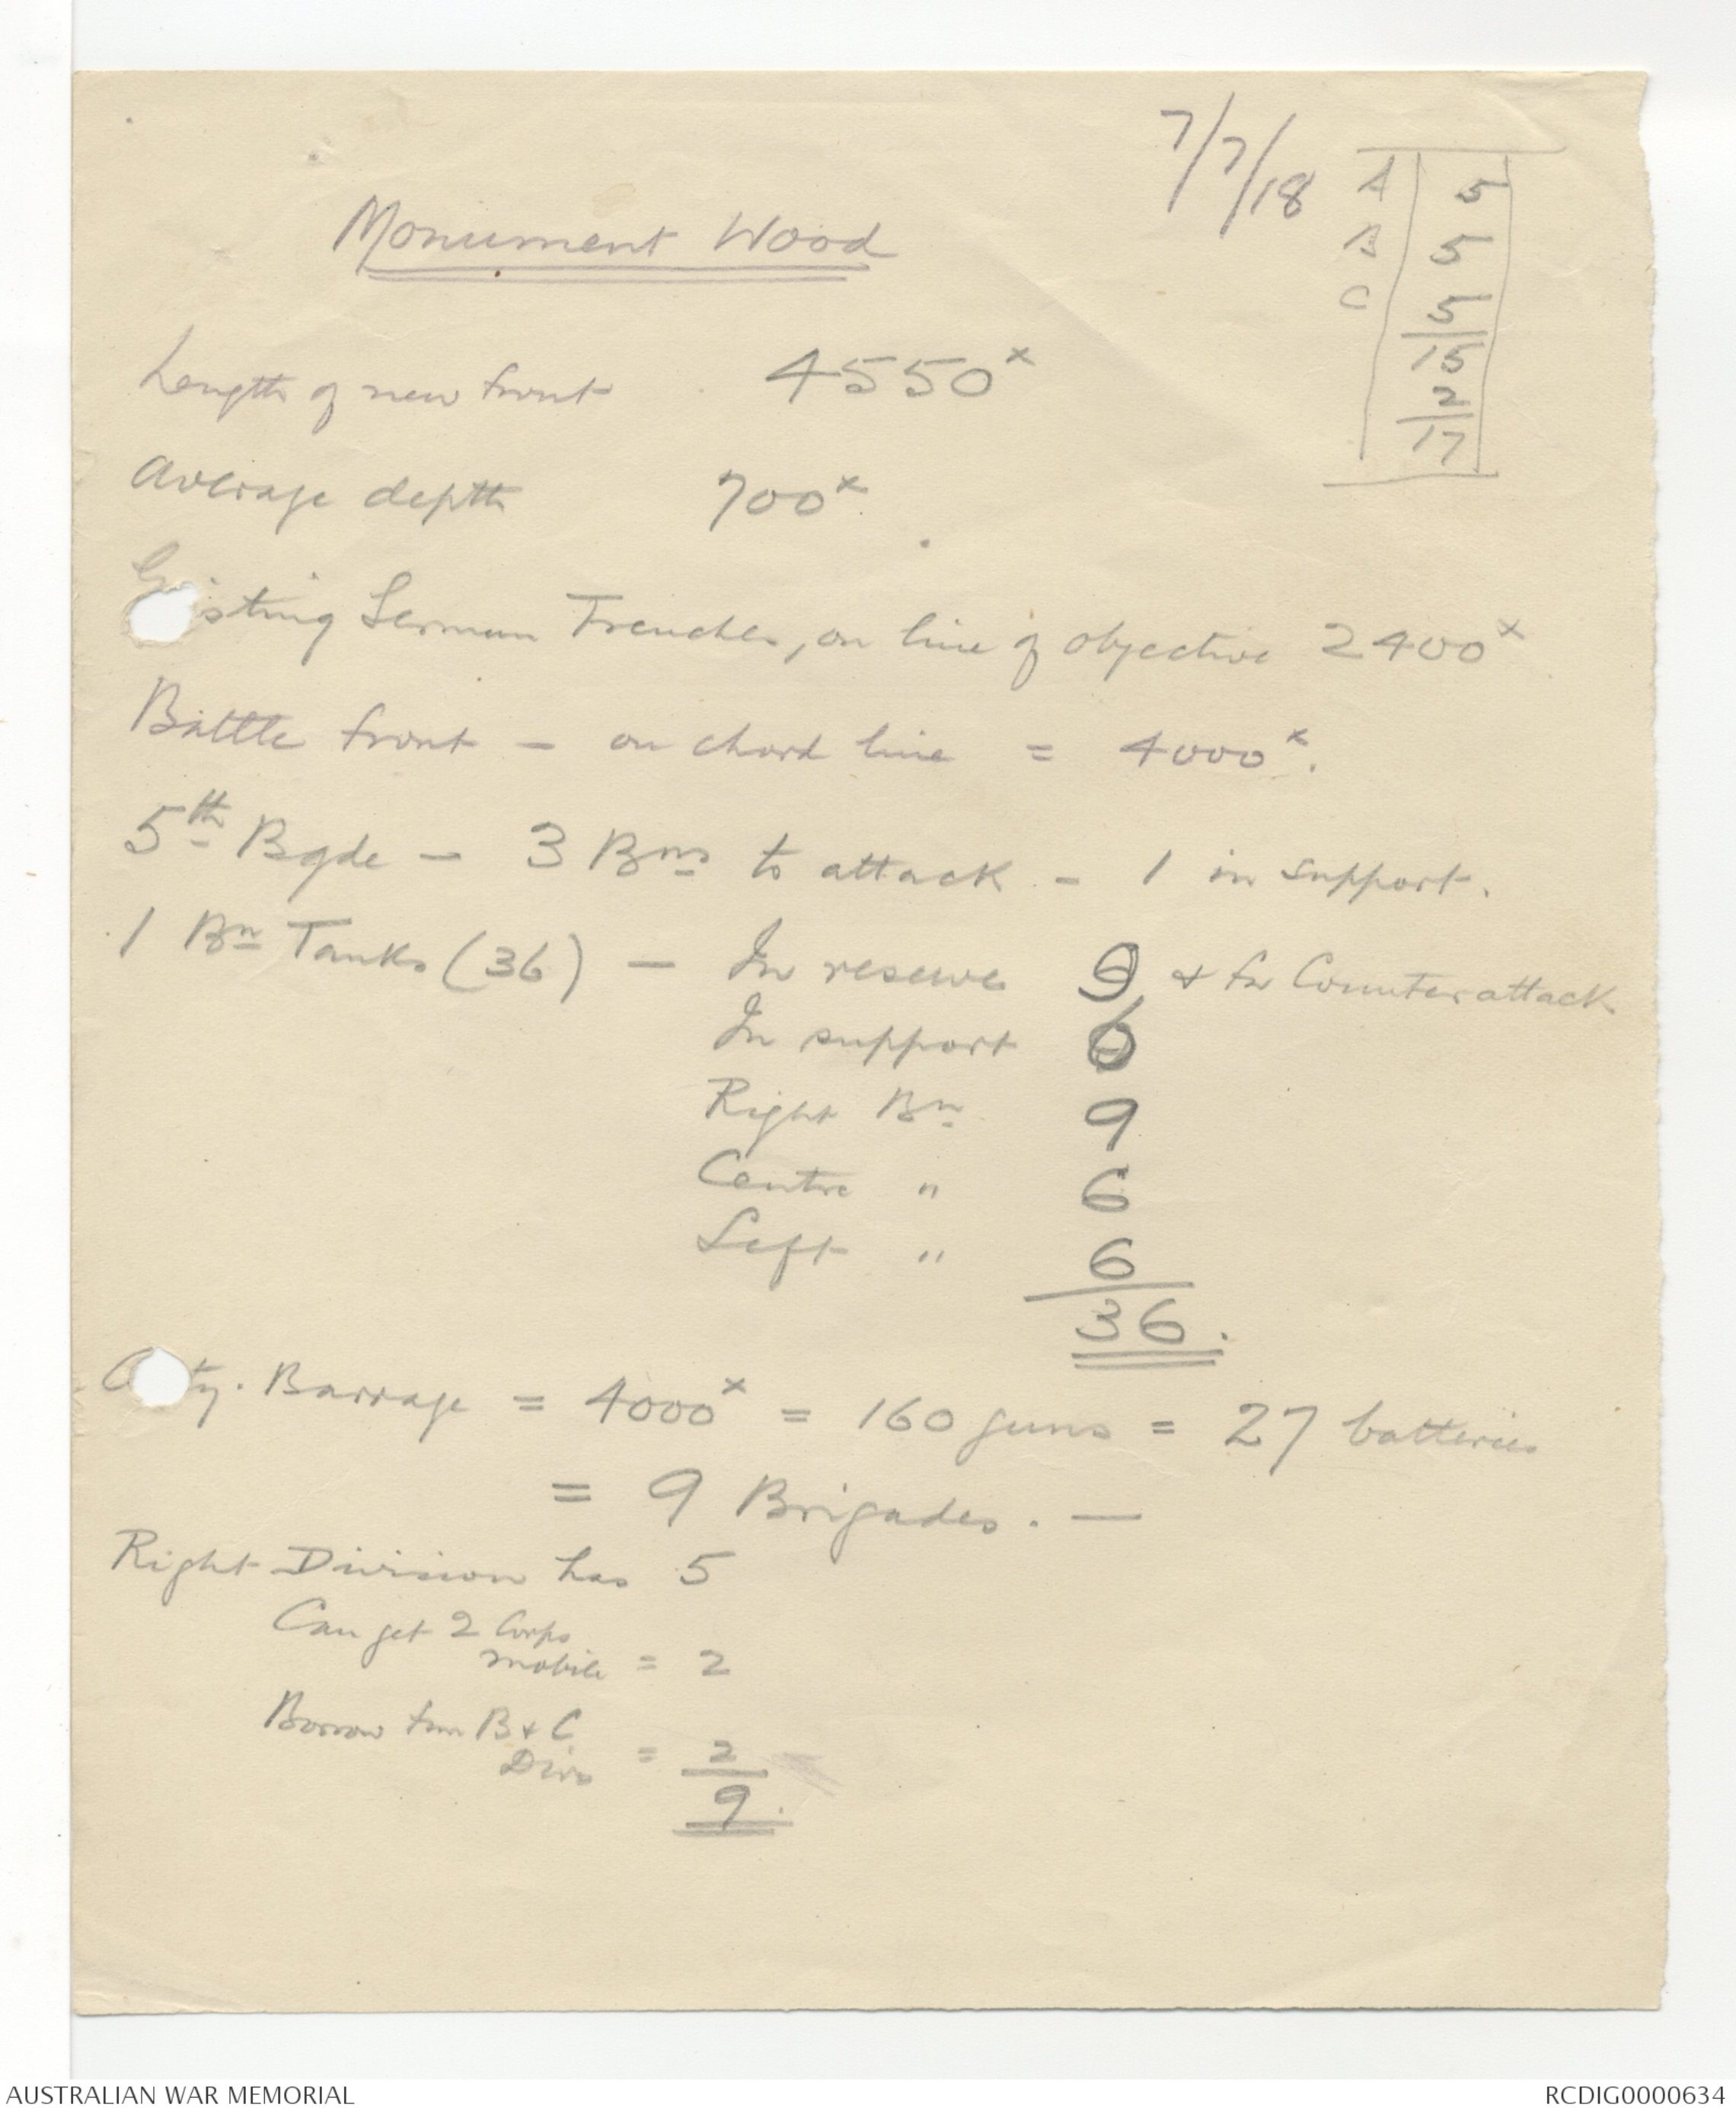 7/7/18
A 5
B 5
C 5
15
2
17
Monument Wood
Length of new front 4550ˣ
Average depth 700ˣ.
E isting German Trenches, on line of objective 2400ˣ
Battle front – on chord line = 4000ˣ.
5th Bgde – 3 Bns to attack – 1 in support.
1 Bn Tanks (36) – In reserve 9 & for Counter attack
In support 6
Right Bn 9
Centre " 6
Left " 6
36.
A ty. Barrage = 4000ˣ = 160 guns = 27 batteries
= 9 Brigades. —
Right Division has 5
Can get 2 Corps
mobile = 2
Borrow from B & C
Divs = 2
9.
AUSTRALIAN WAR MEMORIAL
RCDIG0000634